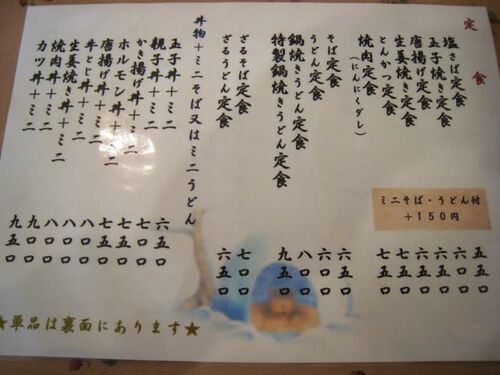 定食
塩さば定食 五五〇
玉子焼き定食 六〇〇
唐揚げ定食 六五〇
生姜焼き定食 六五〇
とんかつ定食 七五〇
焼肉定食(にんにくダレ) 七五〇
ミニそば・うどん付
＋150円
そば定食 六五〇
うどん定食 六〇〇
鍋焼きうどん定食 八〇〇
特製鍋焼きうどん定食 九五〇
ざるそば定食 七〇〇
ざるうどん定食 六五〇
丼物＋ミニそば又はミニうどん
玉子丼＋ミニ 六五〇
親子丼＋ミニ 七〇〇
かき揚げ丼＋ミニ 七五〇
ホルモン丼＋ミニ 七五〇
唐揚げ丼＋ミニ 八〇〇
牛とじ丼＋ミニ 八〇〇
生姜焼き丼＋ミニ 八〇〇
焼肉丼＋ミニ 九〇〇
カツ丼＋ミニ 九五〇
★単品は裏面にあります★